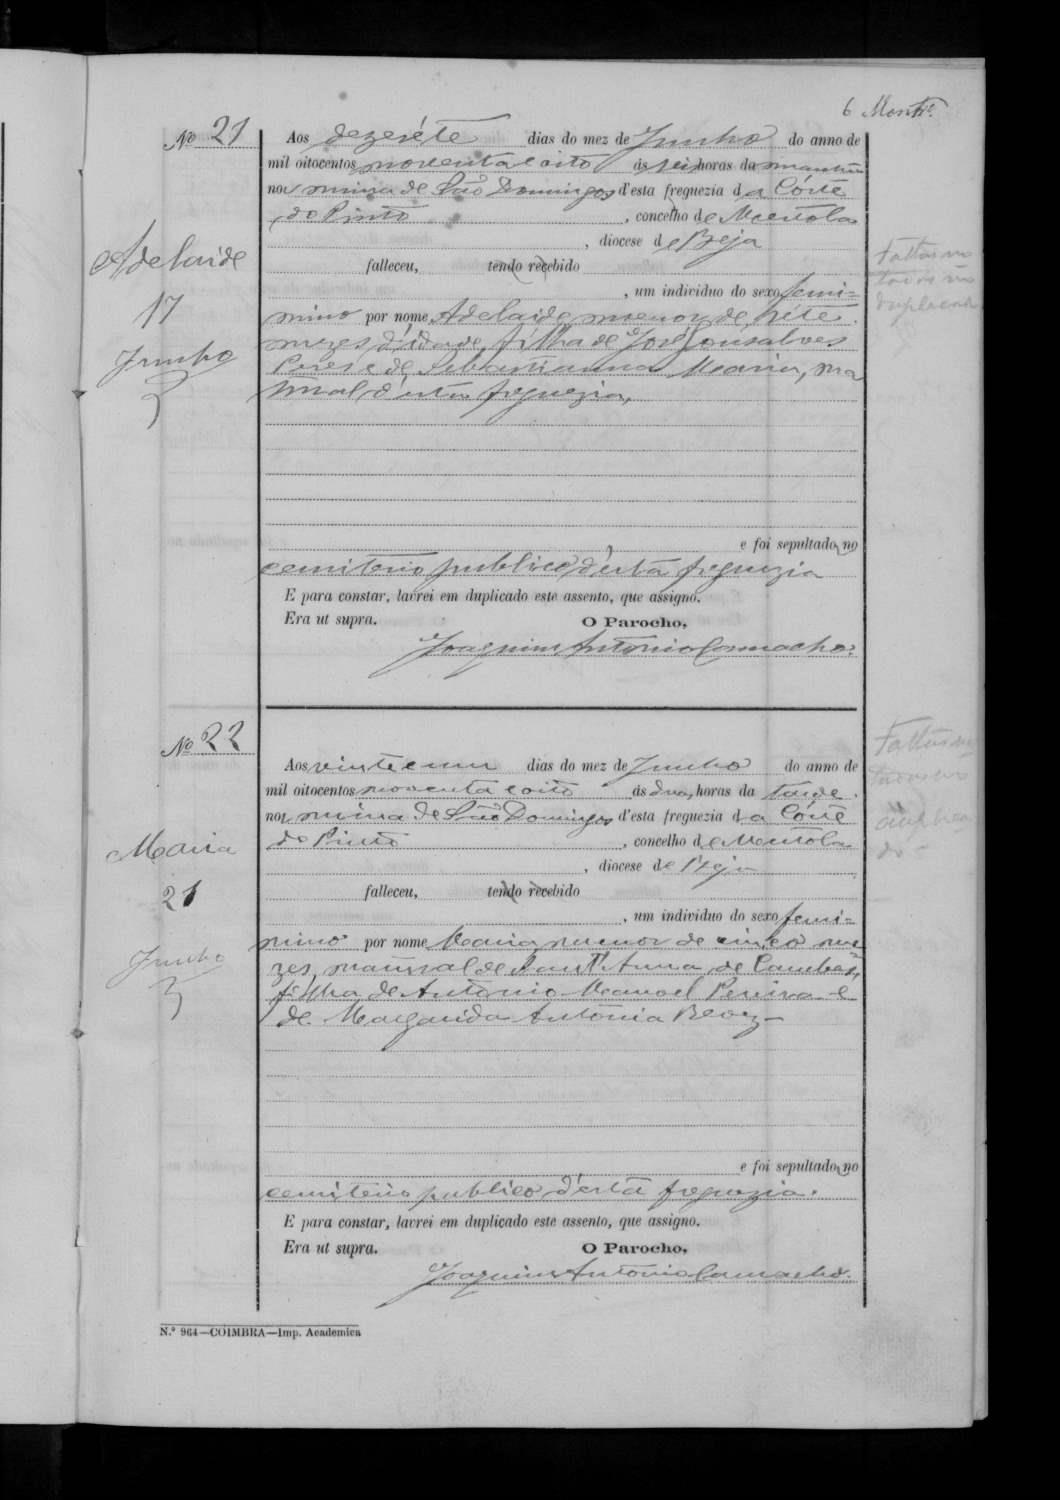 6
Nº 21
Aos dezeséte dias do mez de Junho do anno de
mil oitocentos noventa e oito ás seis horas da manhã
na mina de São Domingos d'esta freguezia da Córte
do Pinto, concelho de Mertola
, diocese de Beja
falleceu, tendo recebido
, um individuo do sexo femi-
nino por nome Adelaide, menor de séte
mezes d'idade, filha de José Gonsalves
Peres e de Sebastianna Maria, na
tural d'esta freguezia,
e foi sepultado no
cemiterio publico d'esta freguezia
E para constar, lavrei em duplicado este assento, que assigno.
Era ut supra. O Parocho,
Joaquim Antonio Camacho.
Adelaide
17
Junho
Nº 22
Aos vinte e um dias do mez de Junho do anno de
mil oitocentos noventa e oito ás duas horas da tarde
na mina de São Domingos d'esta freguezia da Córte
do Pinto, concelho de Mertola
, diocese de Beja
falleceu, tendo recebido
, um individuo do sexo femi-
nino por nome Maria, menor de cinco me
zes, natural de Sant'Anna de Cambas,
filha de Antonio Manoel Pereira e
de Margarida Antonia
e foi sepultado no
cemiterio publico d'esta freguezia.
E para constar, lavrei em duplicado este assento, que assigno.
Era ut supra. O Parocho,
Joaquim Antonio Camacho.
Maria
21
Junho
N.º 964—COIMBRA—Imp. Academica